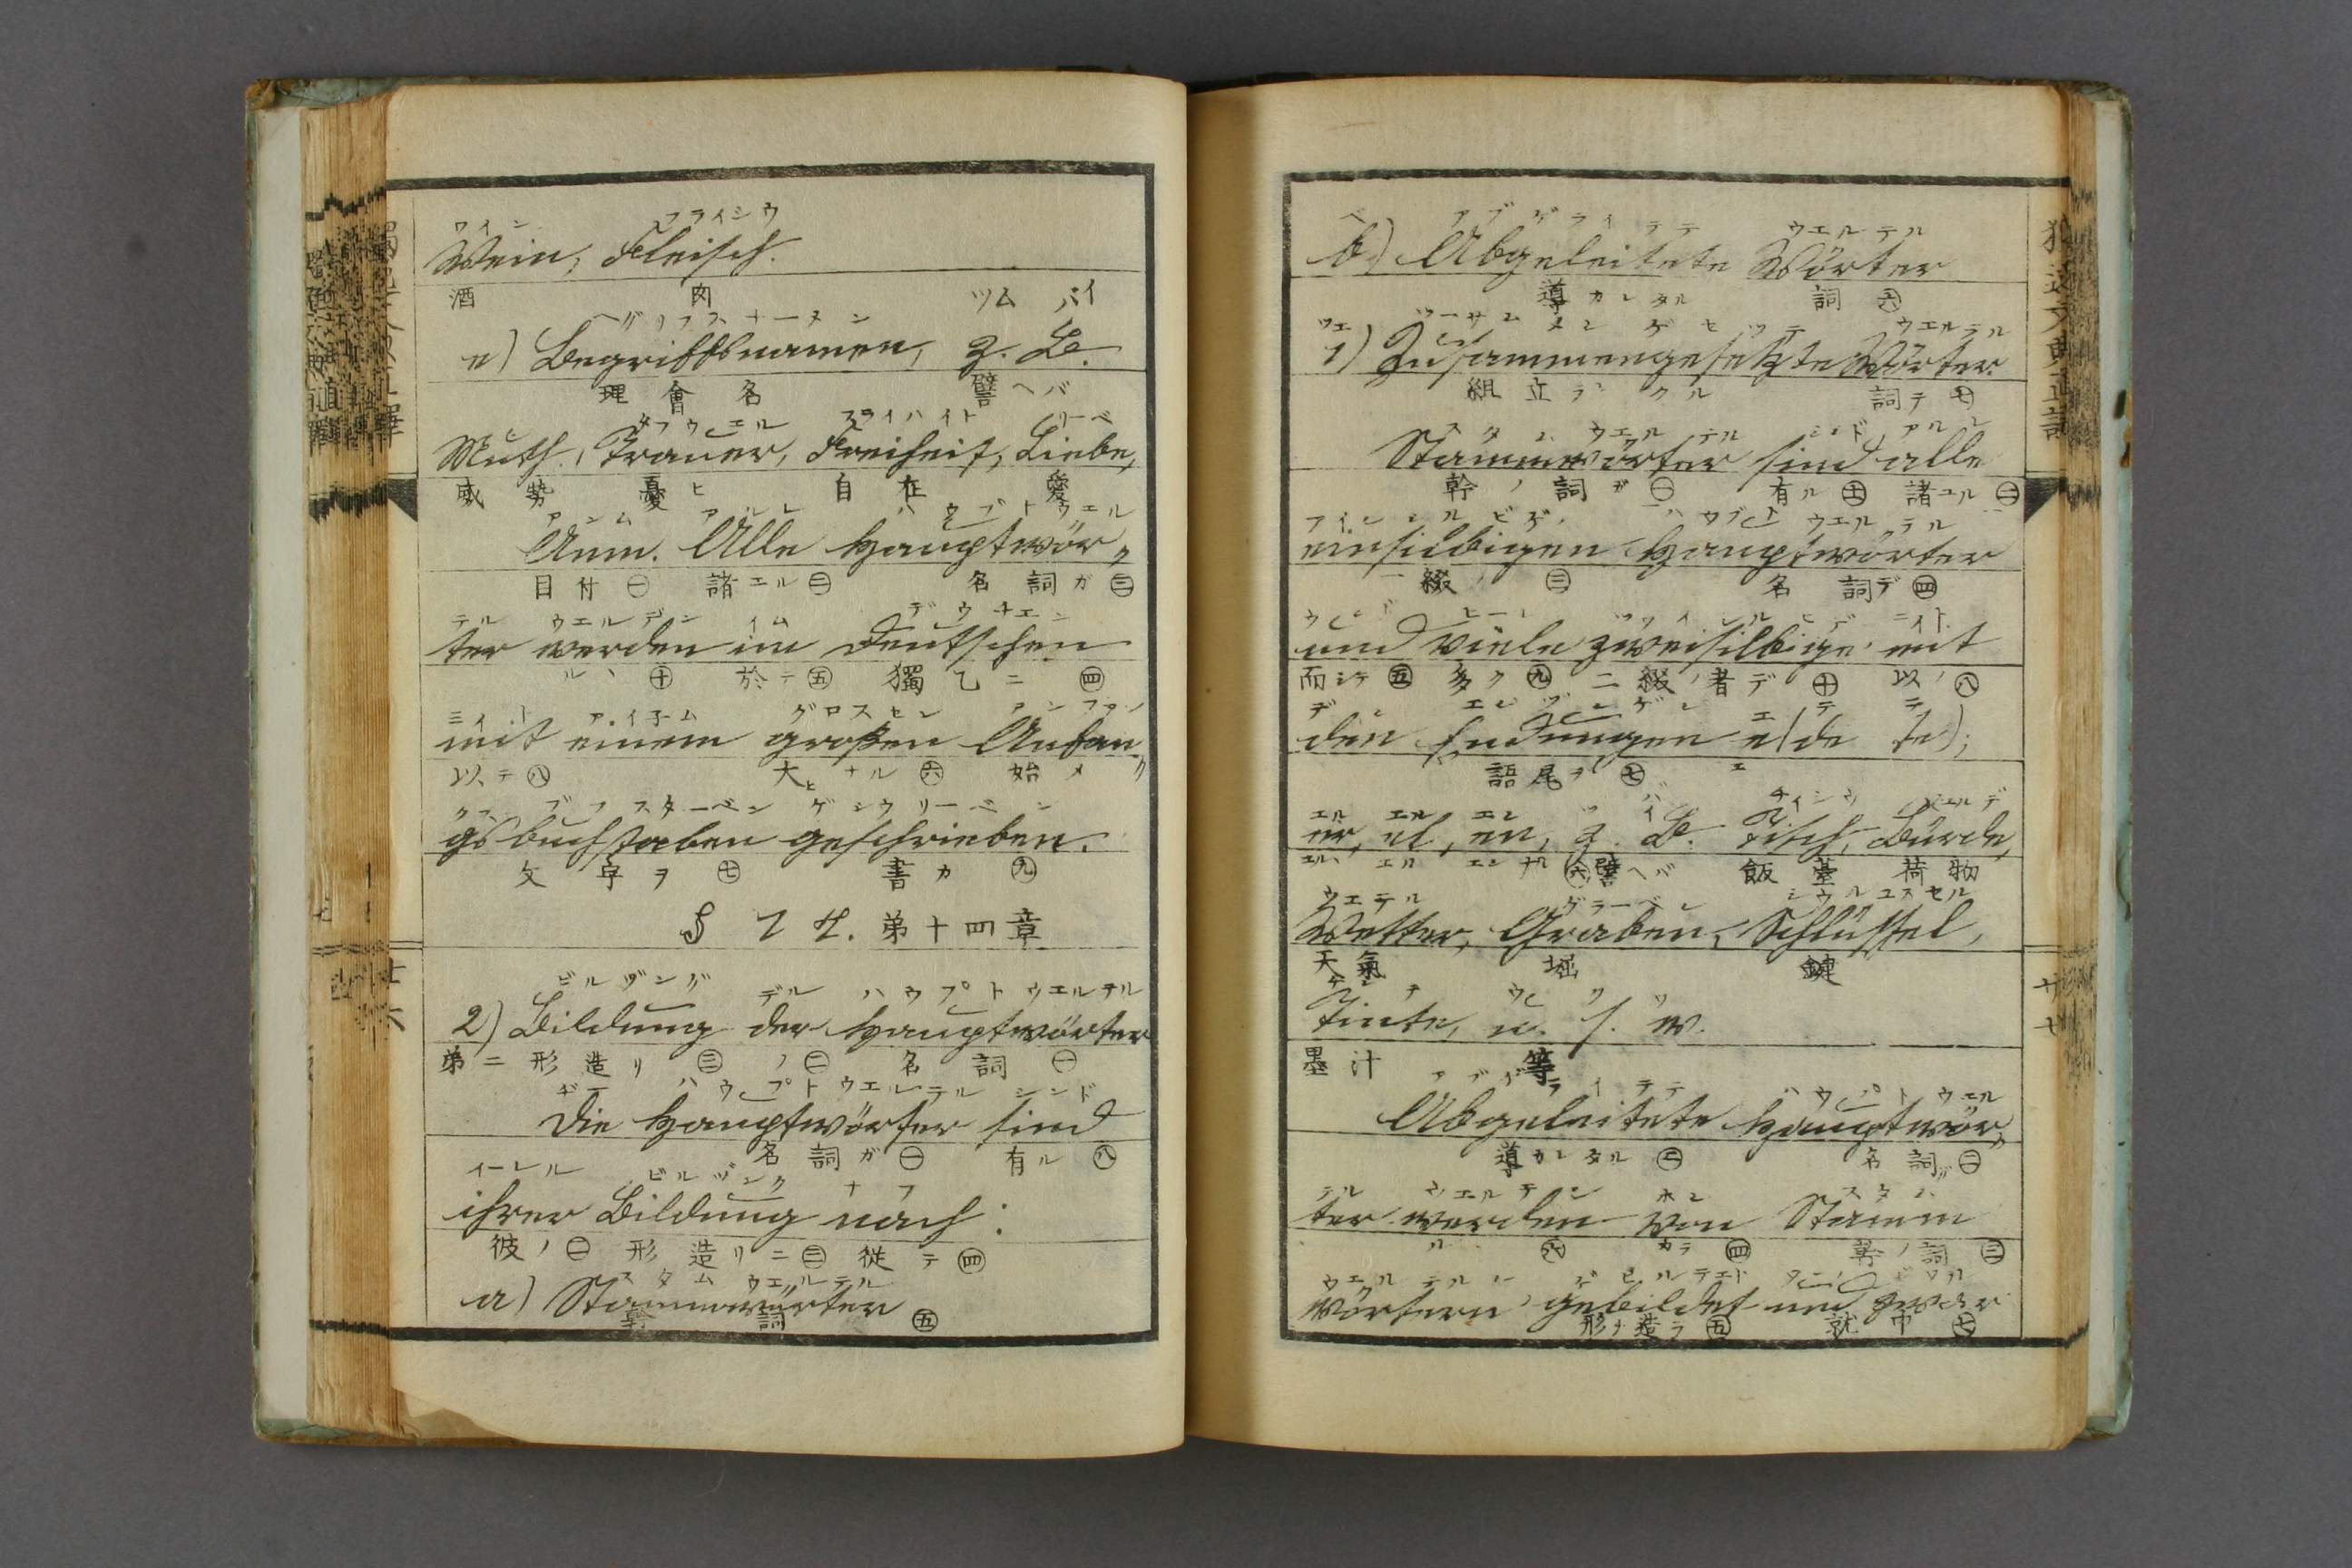 ワイン フライシウ
Wein, Fleisch.
酒 肉 ツム バイ
ベグリフスナーメン
e) Begriffsnamen, z. B.
理會名 譬ヘバ
フライハイト リーベ
Muth, Trauer, Freiheit, Liebe,
威勢 憂ヒ 自在 愛
アンム アルレ ハウプトウエル
Anm. Alle Hauptwör⸗
目付㊀ 諸エル㊁ 名詞ガ㊂
テル ウエルデン イム デウチエン
ter werden im Deutschen
ル丶㊉ 於テ㊄ 獨乙ニ㊃
ミイト アイ子ム グロスセン アンファン
mit einem großen Anfan⸗
以テ㊇ 大ナル㊅ 始メ
グス ブフスターベン ゲシウリーベン
gsbuchstaben geschrieben.
文字ヲ㊆ 書カ㊈
§ 14. 第十四章
ビルヅング デル ハウプトウエルテル
2) Bildung der Hauptwörter
第二形造リ㊂ ノ㊁ 名詞㊀
ヂー ハウプトウエルテル シンド
Die Hauptwörter sind
名詞ガ㊀ 有ル㊇
イーレル ビルヅンク ナフ
ihrer Bildung nach:
彼ノ㊁ 形造リニ㊂ 從テ㊃
スタム ウエルテル
a) Stammwörter
幹詞㊄
ベ アブゲライテテ ウエルテル
b) Abgeleitete Wörter
導カレタル 詞㊅
ツエ ツーサムメンゲセツテ ウエルテル
c) Zusammengesetzte Wörter.
組立ラレタル 詞テ㊆
スタムウエルテル シンド アルレ
Stammwörter sind alle
幹ノ詞ガ㊀ 有ル㊉㊀ 諸ユル㊁
アインシルビゲン ハウプトウエルテル
einsilbigen Hauptwörter
一綴ノ㊂ 名詞デ㊃
ウンド ヒーレ ツワイシルビゲ ミイト
und viele zweisilbige mit
而シテ㊄ 多ク㊈ 二綴ノ者デ㊉ 以ノ㊇
デン エンヅンゲン エ デ テ
den Endungen e (de te);
語尾ヲ㊆ エ
エル エル エン ツ バイ チイシウ ビユルデ
er, el, en, z. B. Tisch, Bürde,
エル、エル エンナル㊅ 譬ヘバ 飯臺 荷物
ウエテル グラーベン シウルユスセル
Wetter, Graben, Schlüssel,
天氣 堀 鍵
Tinte, u. s. w.
墨汁 等
アブゲライテテ ハウプトウエル
Abgeleitete Hauptwör⸗
導カレタル㊀ 名詞ガ㊁
テル ウエルデン ホン スタム
ter werden von Stamm
ル㊇ カラ㊃ 幹ノ詞㊂
wörtern gebildet und zwar
形チ造ラ㊄ 就中㊆